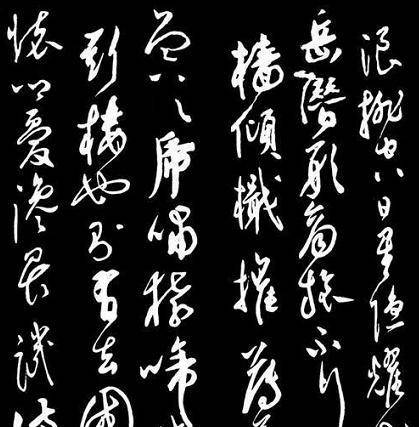 浪排空日星隱耀山
岳潛形商旅不行
檣傾檝摧薄
冥冥虎嘯猿啼
斯樓也則有去國
懷鄉憂讒畏譏滿